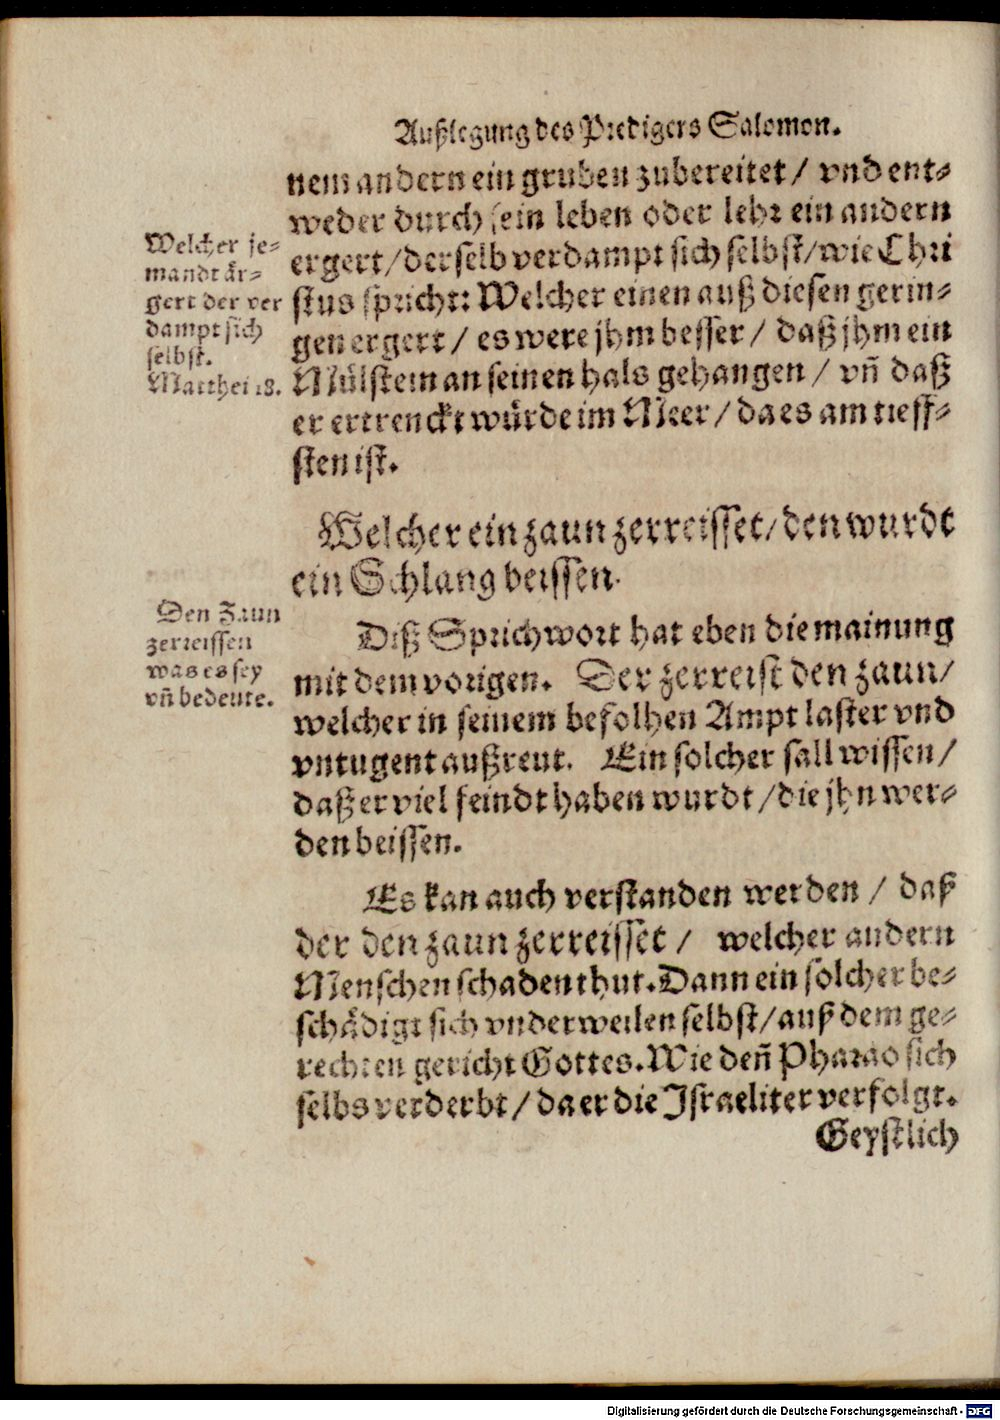 Außlegung des Predigers Salomon.
nem andern ein gruben zubereitet / vnd ent-
weder durch sein leben oder lehr ein andern
ergert / derselb verdampt sich selbst / wie Chri
stus spricht: Welcher einen auß diesen gerin-
gen ergert / es were jhm besser / daß jhm ein
Mülstein an seinen hals gehangen / vñ daß
er ertrenckt würde im Meer / da es am tieff-
sten ist.
Welcher je-
mandt är-
gert der ver
dampt sich
selbst.
Matthei 18.
Welcher ein zaun zerreisset / den wurdt
ein Schlang beissen.
Diß Sprichwort hat eben die mainung
mit dem vorigen. Der zerreist den zaun /
welcher in seinem befolhen Ampt laster vnd
vntugent außreut. Ein solcher sall wissen /
daß er viel feindt haben wurdt / die jhn wer-
den beissen.
Den Zaun
zerreissen
was es sey
vñ bedeute.
Es kan auch verstanden werden / daß
der den zaun zerreisset / welcher andern
Menschen schaden thut. Dann ein solcher be-
schädigt sich vnderweilen selbst / auß dem ge-
rechten gericht Gottes. Wie deñ Pharao sich
selbs verderbt / da er die Israeliter verfolgt.
Geystlich
Digitalisierung gefördert durch die Deutsche Forschungsgemeinschaft - DFG